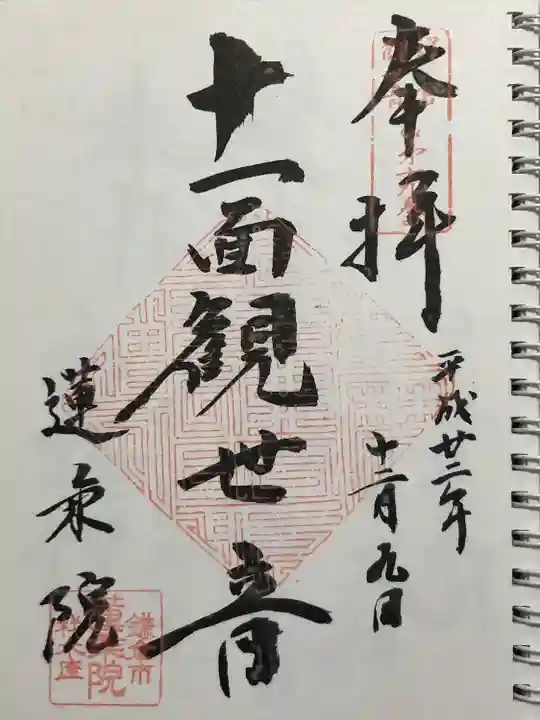 奉拝
平成廿二年
十二月九日
十一面観世音
蓮乗院
鎌倉市
蓮乗院
材木座